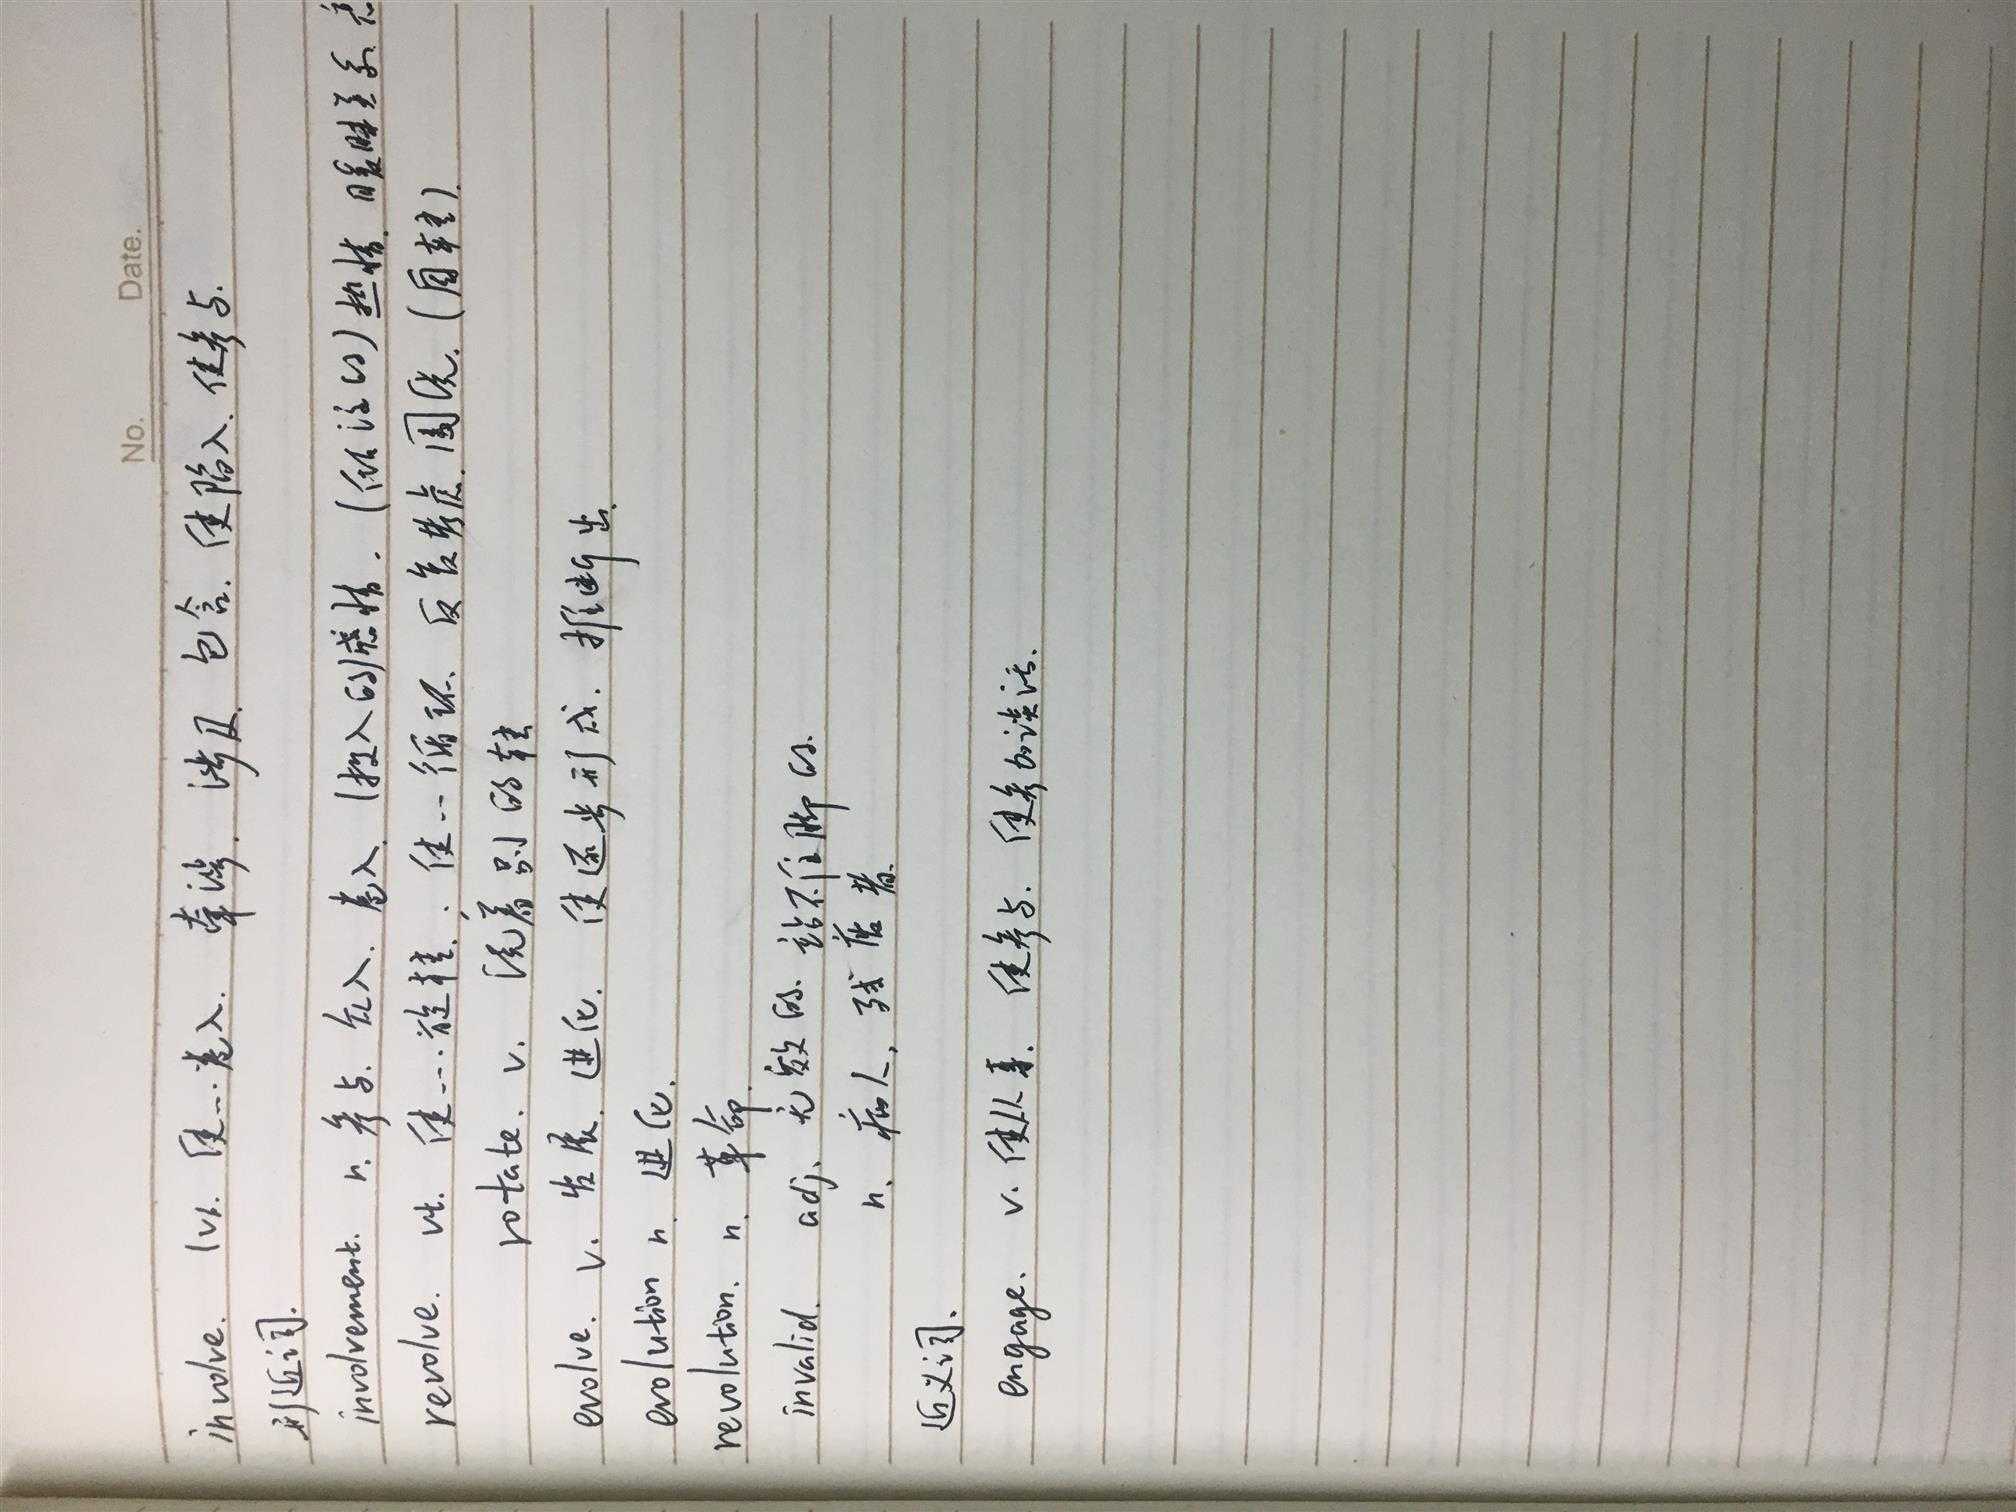 No.    Date.
involve. vt. 使…卷入. 牵涉. 涉及. 包含. 使陷入. 使参与.
形近词.
involvement. n. 参与. 加入. 卷入. (投入的)感情. (倾注的)热情. 暧昧关系.
revolve. vt. 使…旋转. 使…循环. 反复考虑. 围绕. (自转).
rotate. v. 绕着别的转
evolve. v. 发展. 进化. 使逐步形成. 推断出.
evolution n. 进化.
revolution. n. 革命.
invalid. adj. 无效的. 站不住脚的.
n. 病人, 残疾者.
近义词.
engage. v. 使从事. 使参与. 使参加谈话.